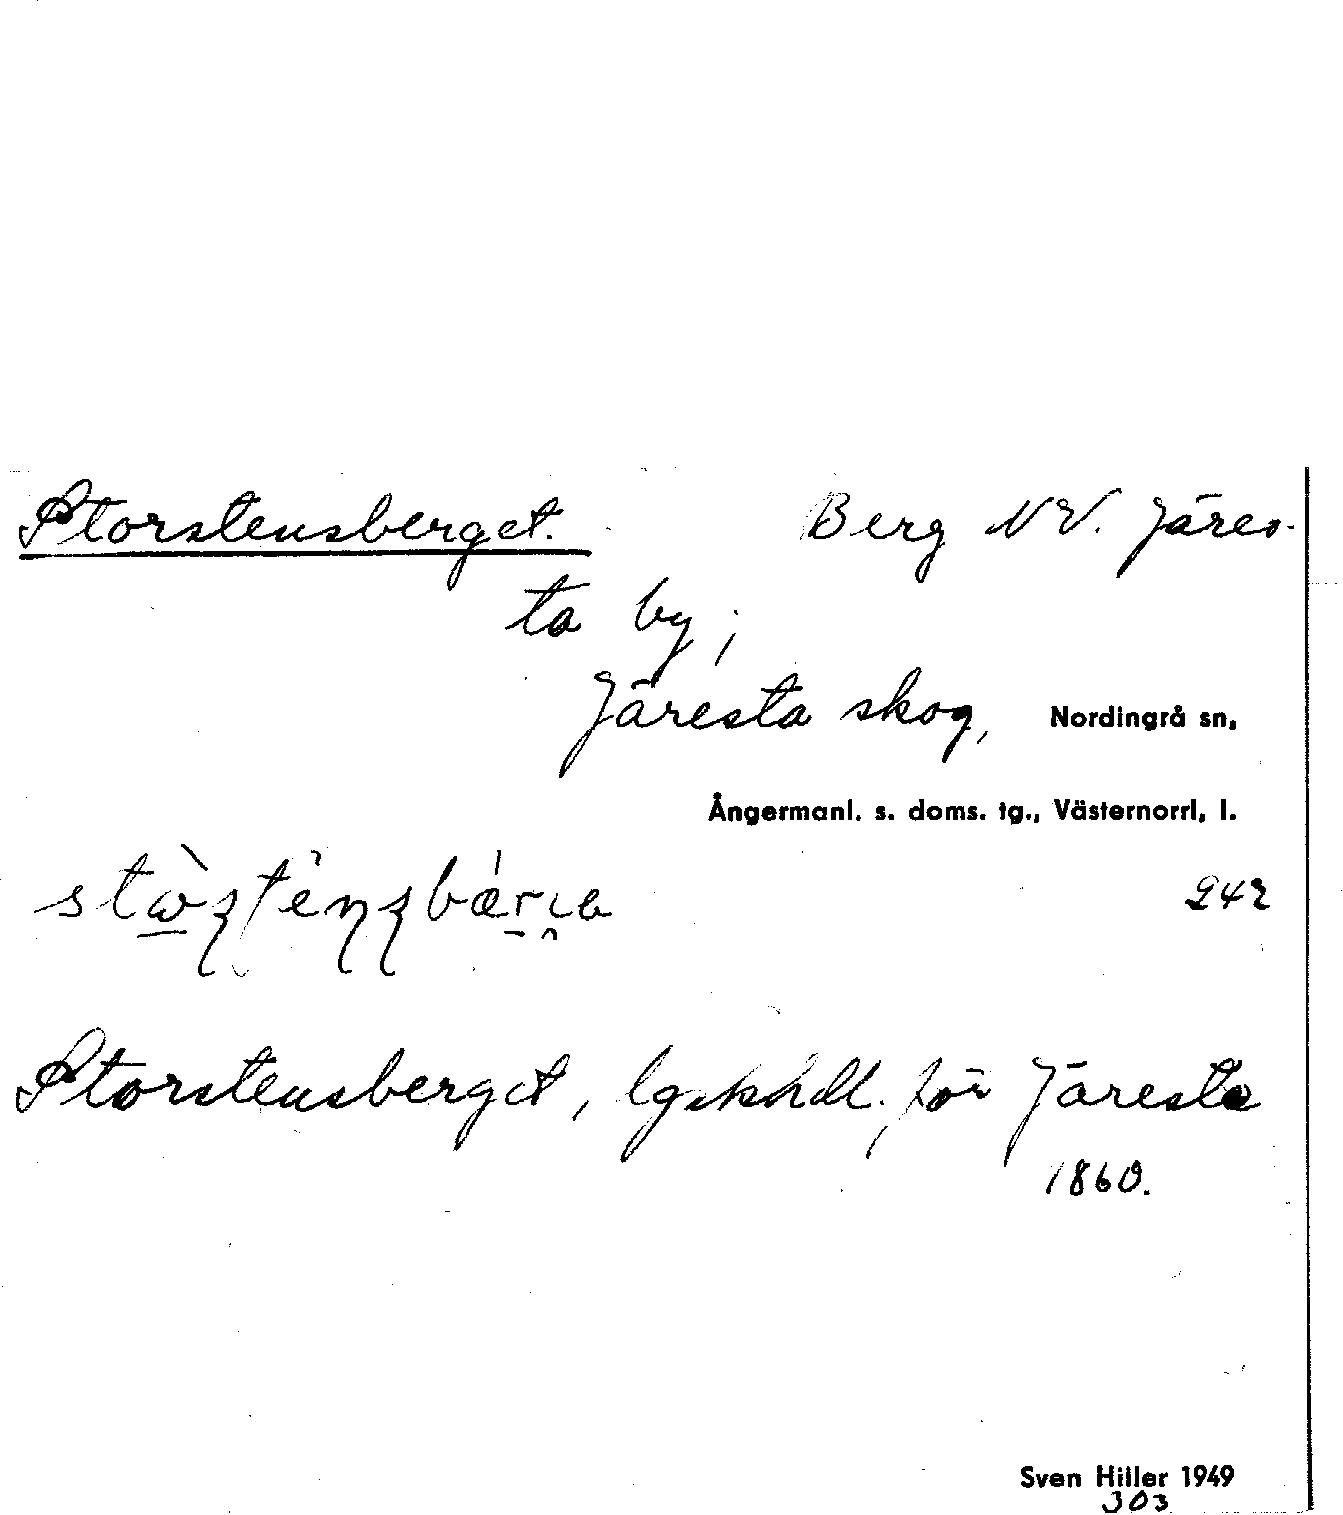 Storstensberget. Berg NV. Järes-
ta by;
Järesta skog, Nordingrå sn,
Ångermanl. s. doms. tg., Västernorrl. l.
242
Storstensberget, lgskhdl. för Järesta
1860.
Sven Hiller 1949
303